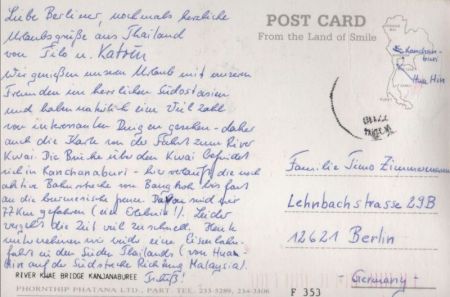 Liebe Berliner, nochmals herzliche
Urlaubsgrüße aus Thailand
von Tilo u. Katrin
Wir genießen unseren Urlaub mit unseren
Freunden im herrlichen Südostasien
und haben natürlich eine Vielzahl
von interessanten Dingen gesehen - daher
auch die Karte von der Fahrt zum River
Kwai. Die Brücke über den Kwai befindet
sich in Kanchanaburi - hier verläuft die noch
aktive Bahnstrecke von Bangkok bis fast
an die burmesische Grenze. Davon sind wir
77 km gefahren (ein Erlebnis!). Leider
vergeht die Zeit viel zu schnell. Heute
unternehmen wir wieder eine Eisenbahn-
fahrt in den Süden Thailands (von Hua
Hin auf der Südstrecke Richtung Malaysia).
RIVER KWAE BRIDGE KANJANABUREE
PHORNTHIP PHATANA LTD., PART. TEL. 233-5289, 234-3406
POST CARD
From the Land of Smile
Kanchana-
buri
Hua Hin
Familie Timo Zimmermann
Lehnbachstrasse 29B
12621 Berlin
- Germany -
F 353